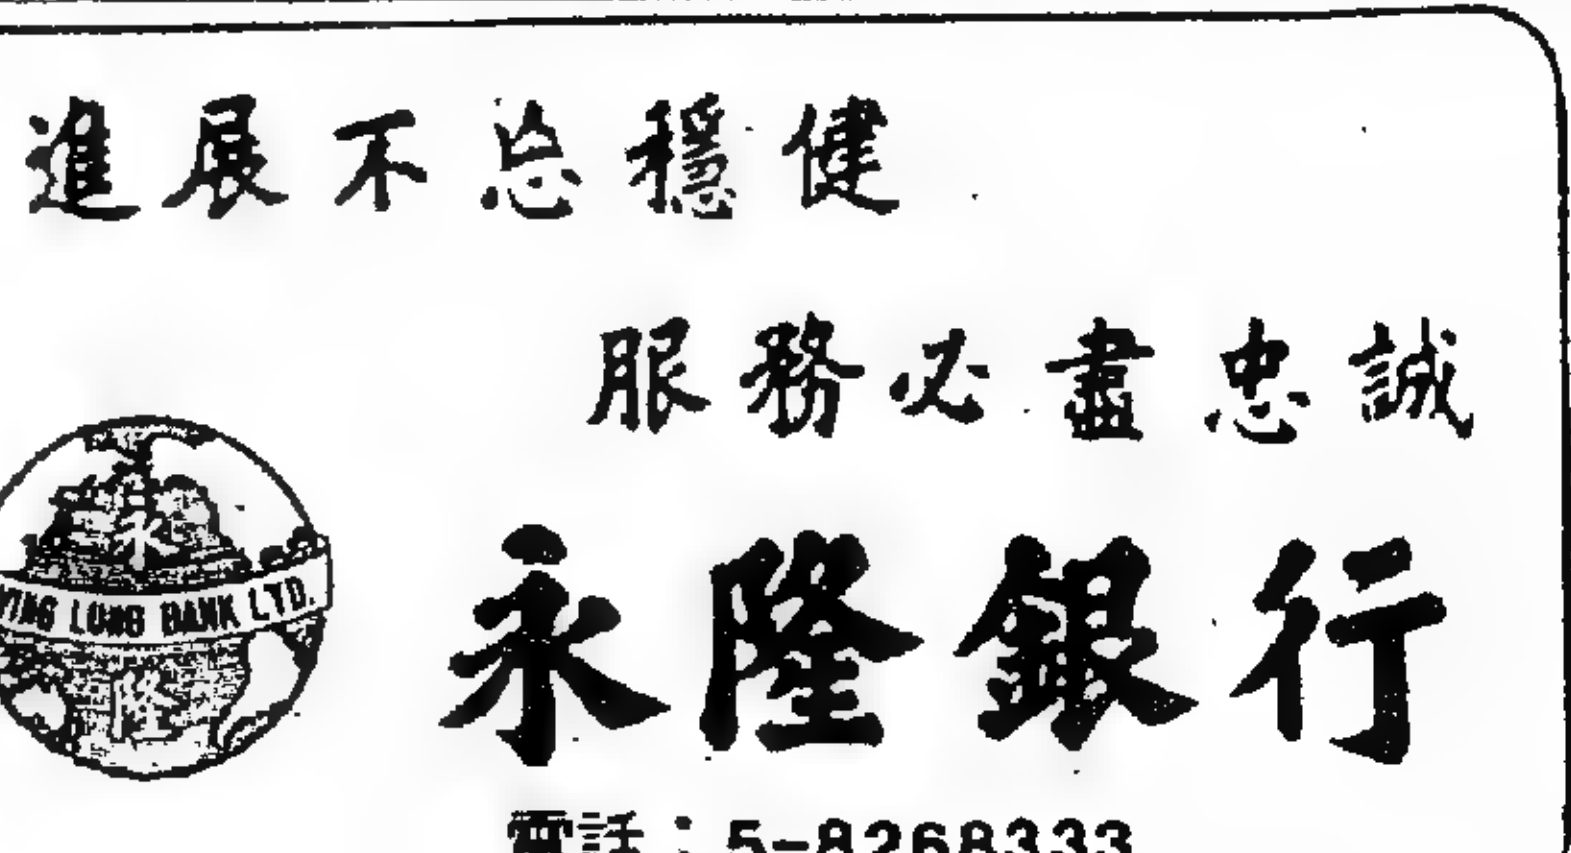 進展不忘穩健
服務必盡忠誠
WING LUNG BANK LTD.
永
隆
永隆銀行
電話：5-8268333